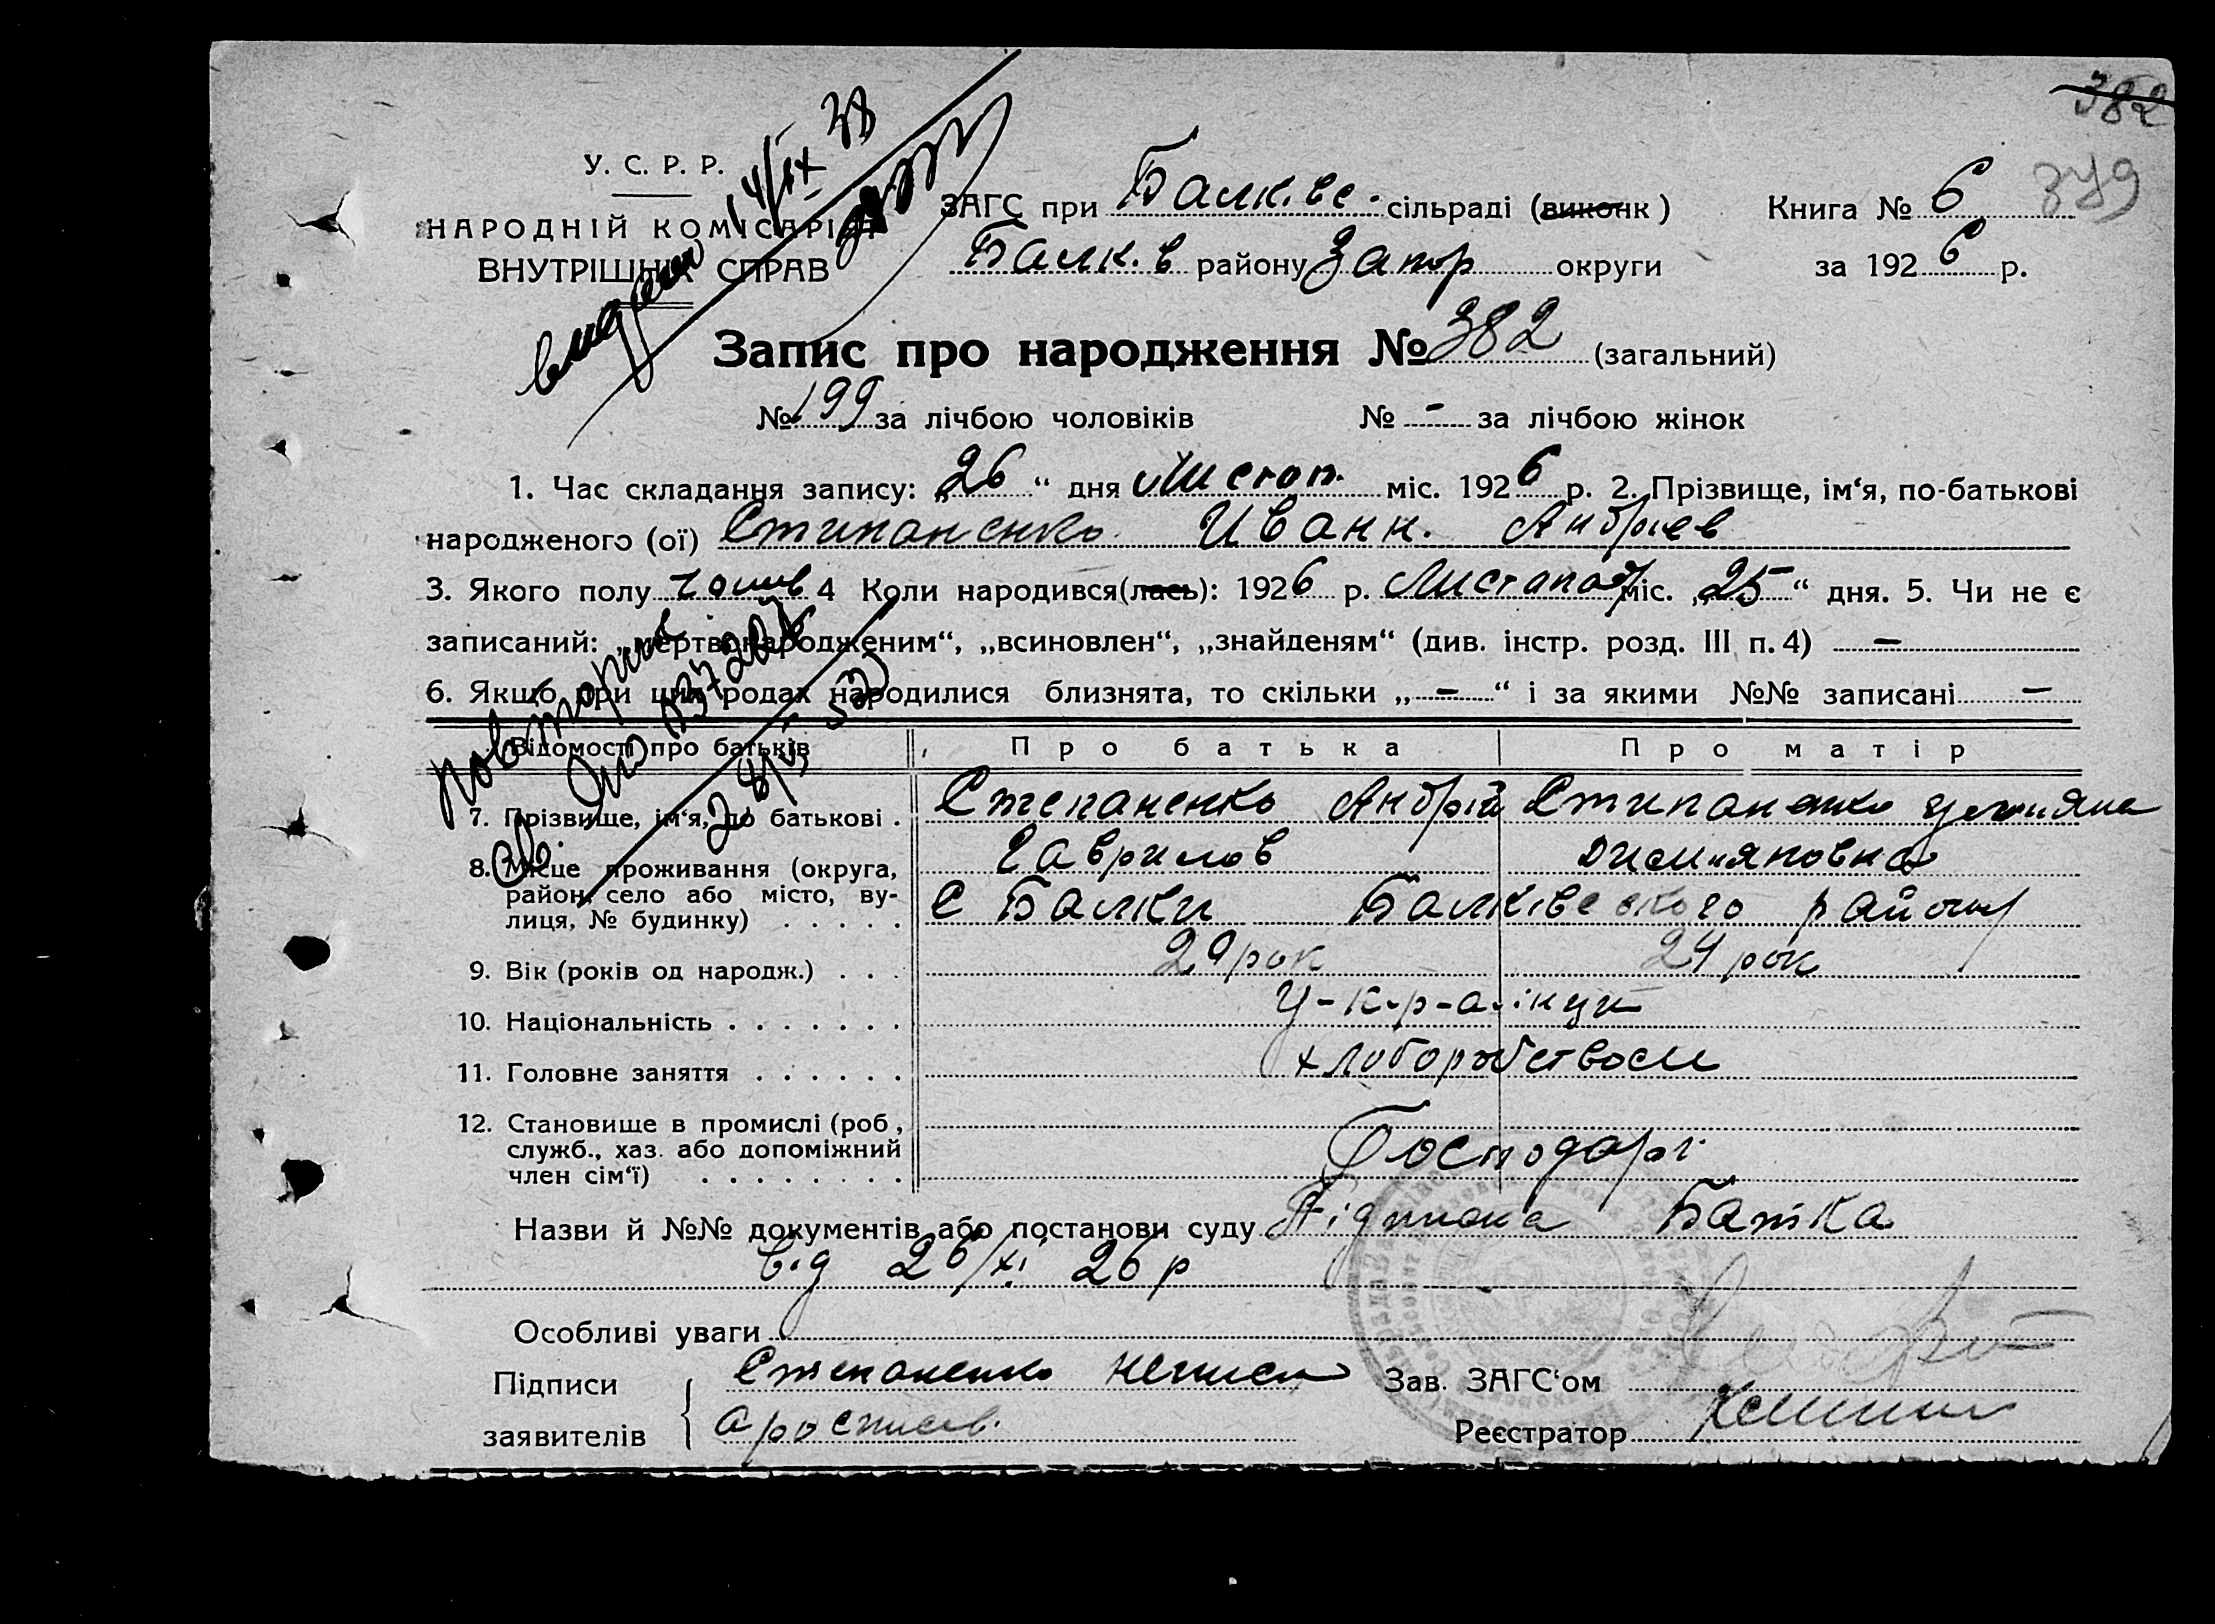 382
379
У. С. Р. Р.
НАРОДНІЙ КОМІСАРІАТ
ВНУТРІШНІХ СПРАВ
видано 14/IX 38
ЗАГС при Балківс. сільраді (виконк)
Книга № 6
Балк.в району Запор округи
за 1926 р.
Запис про народження № 382 (загальний)
№ 199 за лічбою чоловіків № - за лічбою жінок
1. Час складання запису: „26“ дня Листоп. міс. 1926 р. 2. Прізвище, ім‘я, по-батькові
народженого (ої) Стипаненко Иванн. Андріев
3. Якого полу чолов 4 Коли народився(лась): 1926 р. Листопад міс. „25“ дня. 5. Чи не є
записаний: „мертвонародженим“, „всиновлен“, „знайденям“ (див. інстр. розд. III п. 4) —
6. Якщо при цих родах народилися близнята, то скільки „—“ і за якими №№ записані —
повторное
Відомості про батьків Про батька Про матір
7. Прізвище, ім‘я, по батькові . Степаненко Андрій Стипаненко
Гаврилов
8. Місце проживання (округа,
район, село або місто, ву-
лиця, № будинку) . . . . . С Балки Балківського району
9. Вік (років од народж.) . . . 29 рок 24 рок
10. Національність . . . . . . . У-к-р-а-інци
11. Головне заняття . . . . . . хлоборобством
12. Становище в промислі (роб,
служб., хаз. або допоміжний
член сім‘ї) . . . . . . . . Господарі
Назви й №№ документів або постанови суду Підписка Батка
від 26/XI 26 р
Особливі уваги
Підписи Степаненко неписм
Зав. ЗАГС‘ом
заявителів
Реєстратор